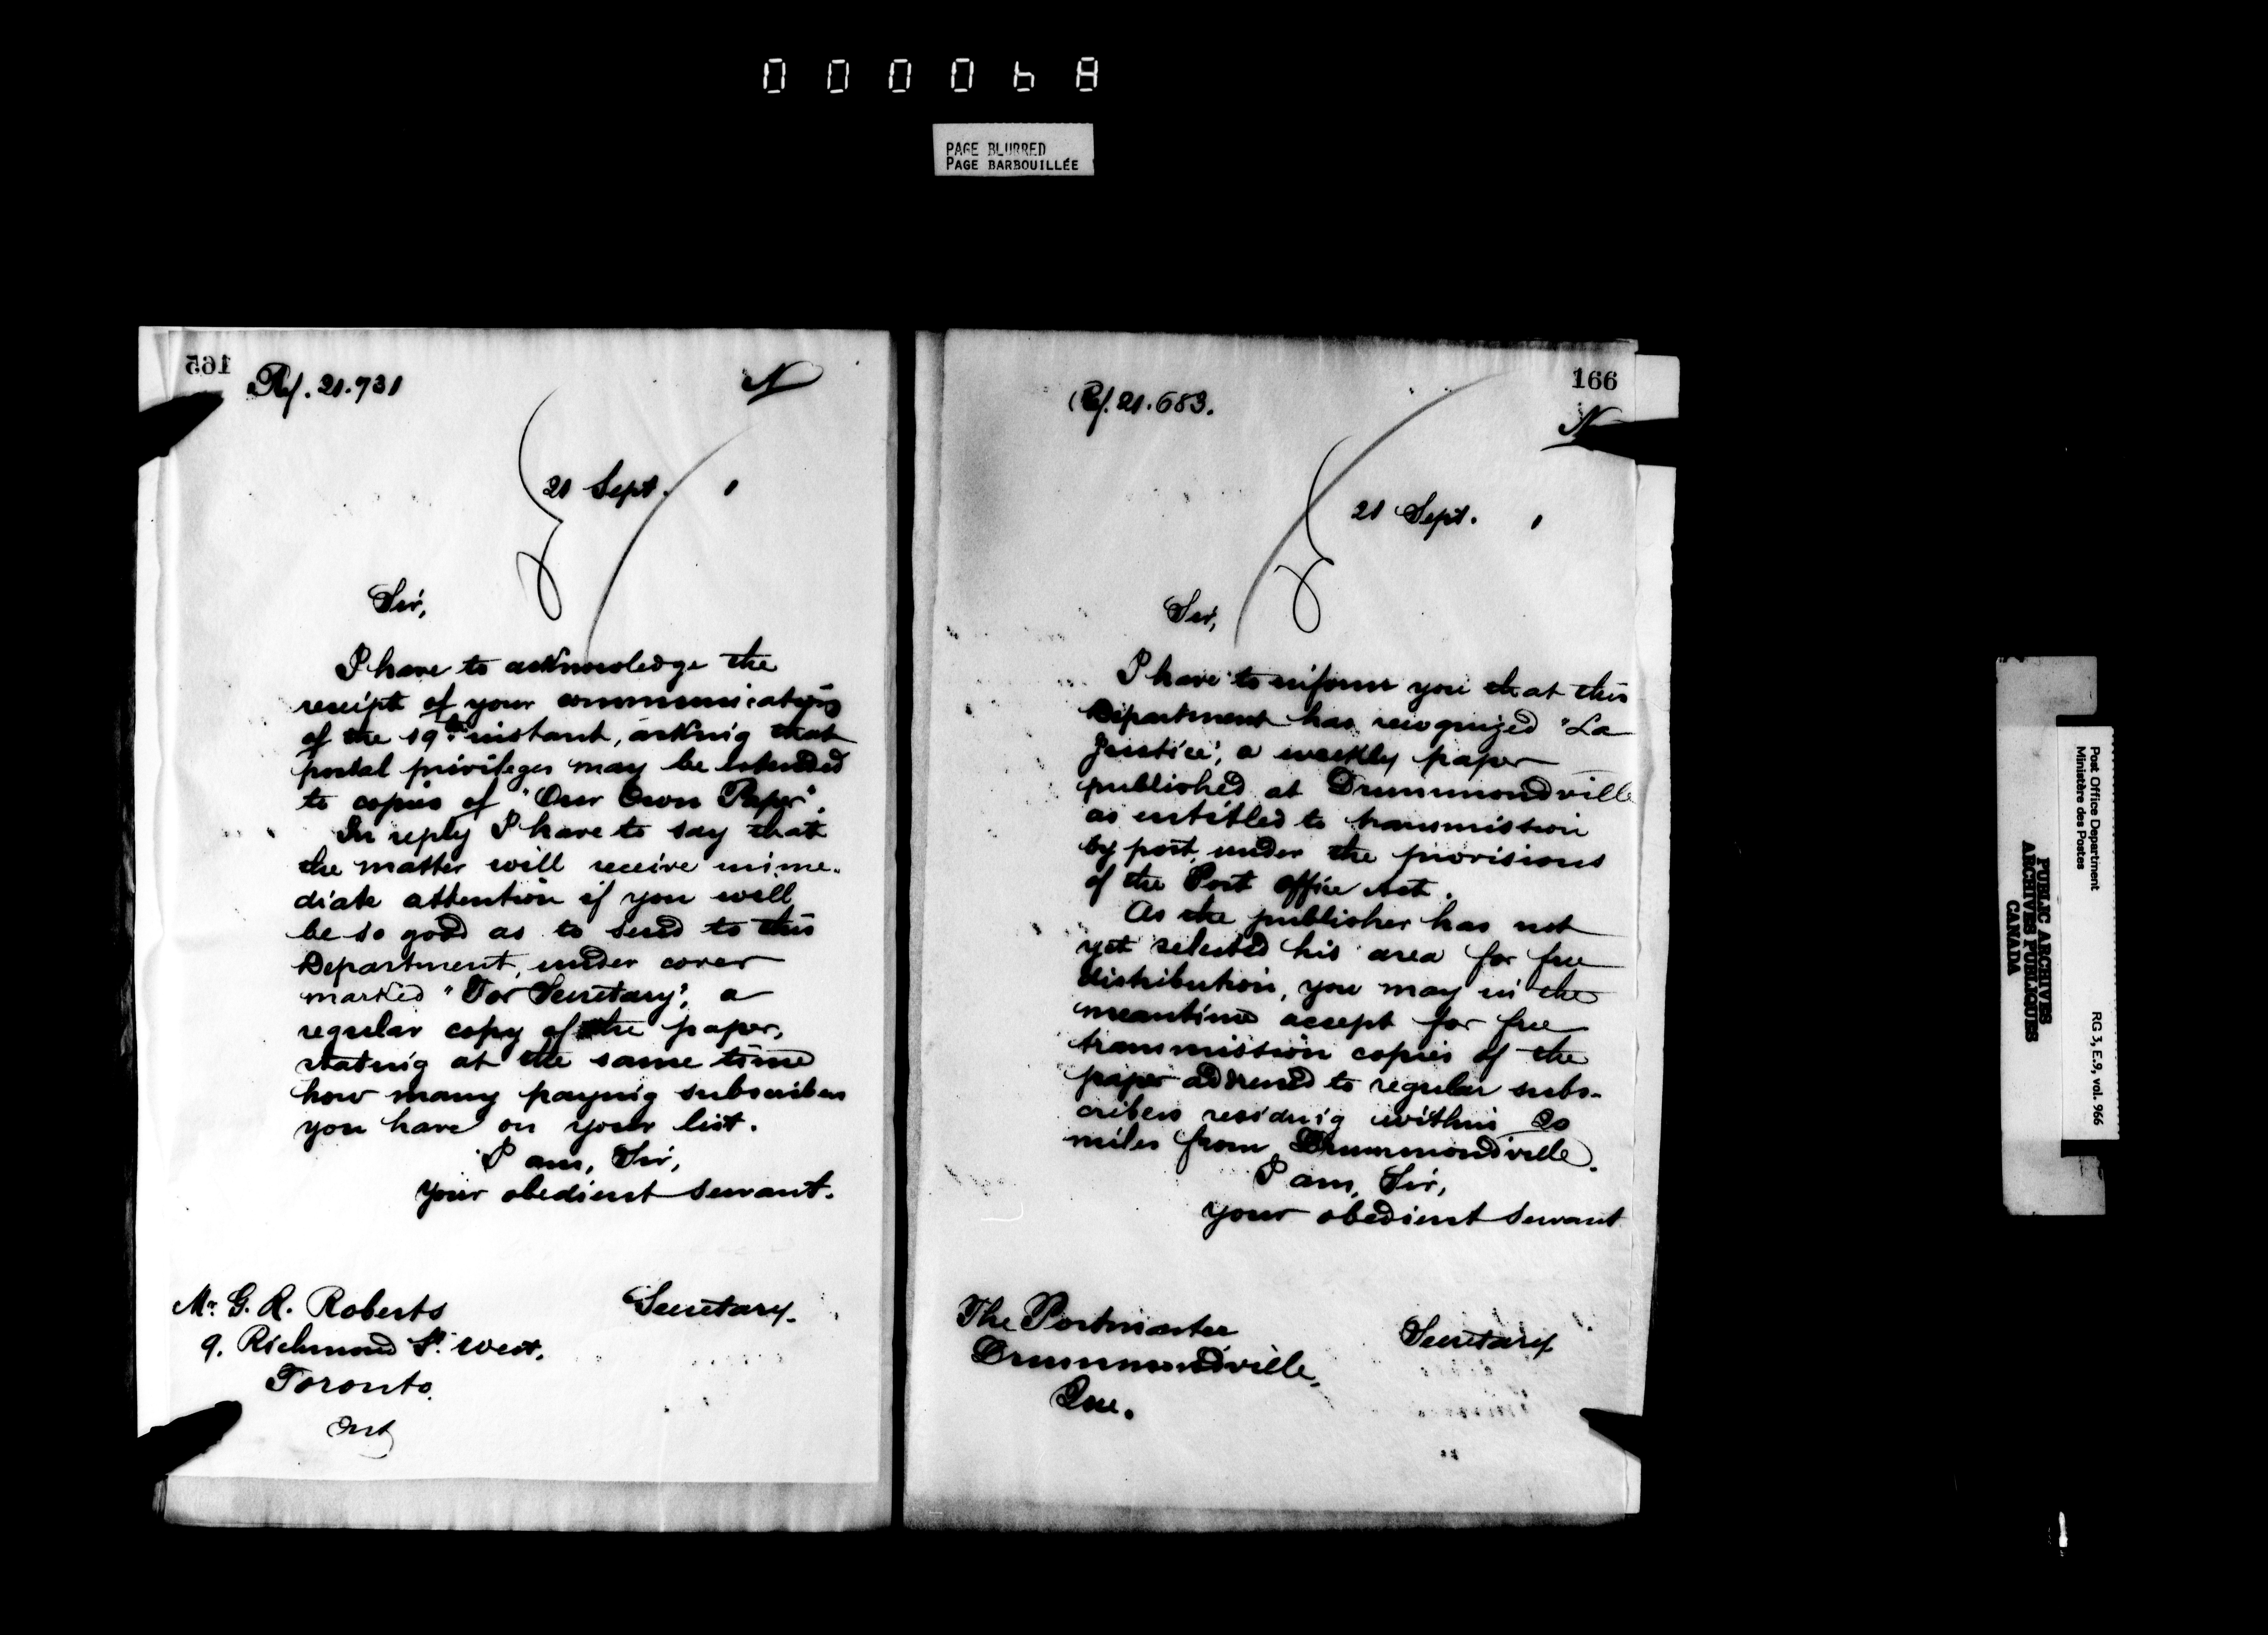 PAGE BLURRED
PAGE BARBOUILLÉE
165
Ref. 21.731
N
21 Sept. 1
Sir,
I have to acknowledge the
receipt of your communication
of the 19th instant, asking that
postal privileges may be extended
to copies of "Our Own Paper".
In reply I have to say that
the matter will receive imme-
diate attention if you will
be so good as to send to this
Department, under cover
marked "For Secretary", a
regular copy of the paper,
stating at the same time
how many paying subscribers
you have on your list.
I am, Sir,
Your obedient servant.
Secretary.
Mr. G. R. Roberts
9. Richmond St. West.
Toronto.
Ont
166
Ref. 21.683.
N
21 Sept. 1
Sir,
I have to inform you that this
Department has recognized "La
Justice", a weekly paper
published at Drummondville
as entitled to transmission
by post under the provisions
of the Post Office Act.
As the publisher has not
yet selected his area for free
distribution, you may in the
meantime accept for free
transmission copies of the
paper addressed to regular subs-
cribers residing within 20
miles from Drummondville.
I am, Sir,
your obedient servant
Secretary
The Postmaster
Drummondville,
Que.
Post Office Department
Ministère des Postes
RG 3, E.9, vol. 966
PUBLIC ARCHIVES
ARCHIVES PUBLIQUES
CANADA